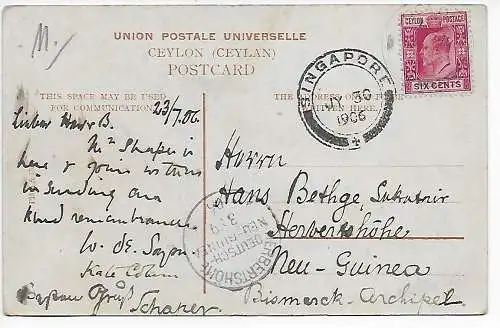 M.
UNION POSTALE UNIVERSELLE
CEYLON (CEYLAN)
POSTCARD
THIS SPACE MAY BE USED
FOR COMMUNICATION
THE ADDRESS ONLY TO BE
WRITTEN HERE
CEYLON POSTAGE
SIX CENTS
SINGAPORE
30
1906
23/7.06.
Lieber Herr B.
Mr Shaper is
here & joins us two
in sending our
kind remembrances
W. de
Kate
Gruß
Herrn
Hans Bethge,
Herbertshöhe
Neu-Guinea
Bismarck-Archipel
HERBERTSHÖHE
DEUTSCH-
NEU-GUINEA